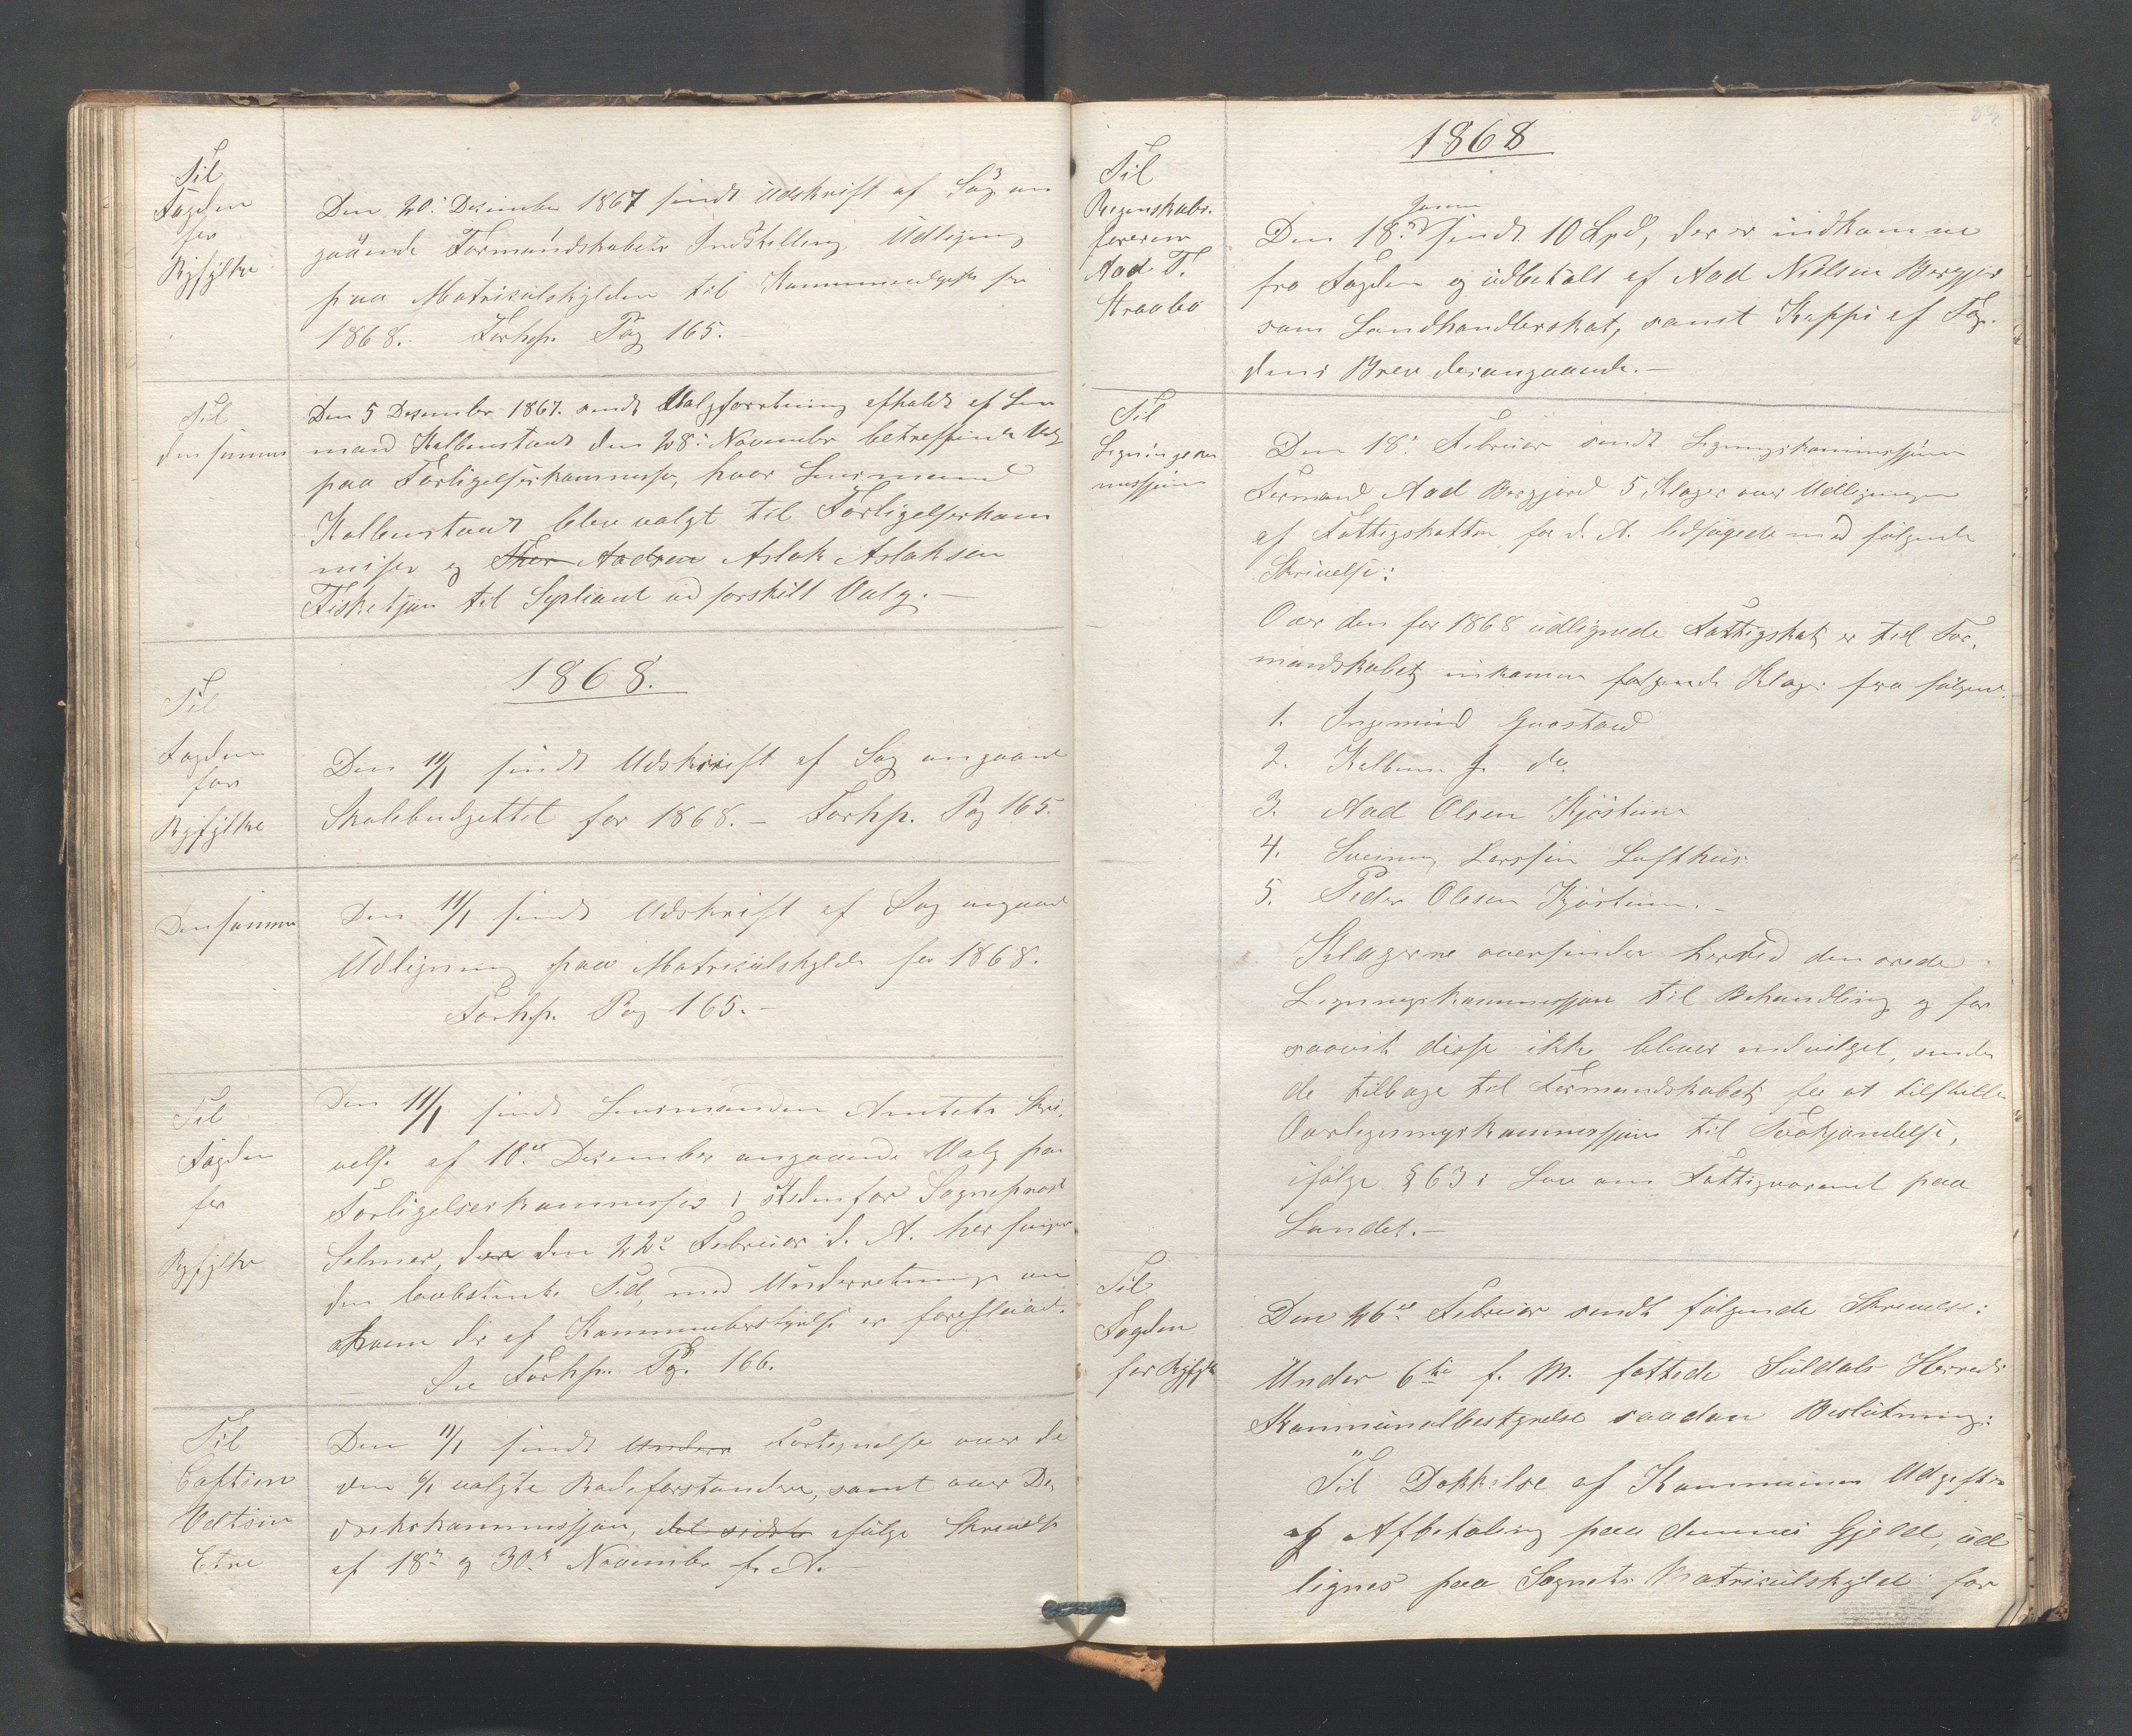 Til
Fogden
for
Ryfylke
Den 20de Desember 1867 sendt Udskrift af Sag an
gaaende Formandskabets Indstilling Udligning
paa Matrikulskylden til Kommuneudgifter for
1868. Forhp. Pag 165.
Til
den samme
Den 5 Desember 1867. sendt Valgforretning afholdt af Lens
mand Kolbenstvedt den 28de November betreffende Valg
paa Forligelseskommissær, hvor Lensmand
Kolbenstvedt blev valgt til Forligelseskom
missær og Aslak Aslaksen
Fisketjøn til Supliant ved forskilt Valg.
1868.
Til
Fogden
for
Ryfylke
Den 11/1 sendt Udskrift af Sag angaaende
Skolebudgettet for 1868. – Forhp. Pag 165.
Den samme
Den 11/1 sendt Udskrift af Sag angaaende
Udligning paa Matrikulskylden for 1868.
Forhp. Pag 165.
Til
Fogden
for
Ryfylke
Den 11/1 sendt Lensmanden Amtets Skri,
velse af 10de Desember angaaende Valg paa
Forligelseskommissær i Stedenfor Sogneprest
Selmer, der den 22de Februar d. A. har
den lovbestemte Tid, med Underretning om
af Kommunebestyrelse er foreslaaet.
See Forhp. Pg. 166.
Til
Captein
Veltsin
Etne
Den 11/1 sendt Under Fortegnelse over de
den 6/1 valgte Rodeforstandere, samt over Di,
striktskommissjon, det sidste ifølge Skrivelse
af 18de og 30te November f. A.
1868
Til
Regnskabs.
føreren
Aad T.
Straabø
Januar
Den 18de sendt 10 Spd, der er indkomne
fra Fogden og udbetalt af Aad Nielsen Berggjør
som Landhandlerskat, samt Koppi af Fog.
dens Brev desangaaende.
Til
Ligningskom
missjonen
Den 18de Februar sendt Ligningskommissjonens
Formand Aad Berggjord 5 Klager over Udligningen
af Fattigskatten for d. A. ledsagede med følgende
Skrivelse:
Over den for 1868 udlignede Fattigskat er til For,
mandskabet inkomne følgende Klager fra følgende
1. Ingemund Gvastad
2. Kolben do
3. Aad Olsen Kjøstein
4. Sveinung Larssen Lofthus.
5. Peder Olsen Kjøstein.
Klagerne oversendes herved den ærede
Ligningskommissjon til Behandling og for
saavit disse ikke bliver indvilget, sendes
de tilbage til Formandskabet for at tilstilles
Overligningskommissjon til Paakjendelse,
ifølge § 63 i Lov om Fattigvæsenet paa
Landet.
Til
Fogden
for Ryfylke
Den 26de Februar sendt følgende Skrivelse:
Under 6te f. M. fattede Suldals Herreds
Kommunalbestyrelse saadan Beslutning:
"Til Dækkelse af Kommunens Udgifter
og Afbetaling paa dennes Gjeld, ud
lignes paa Sognets Matrikulskyld for